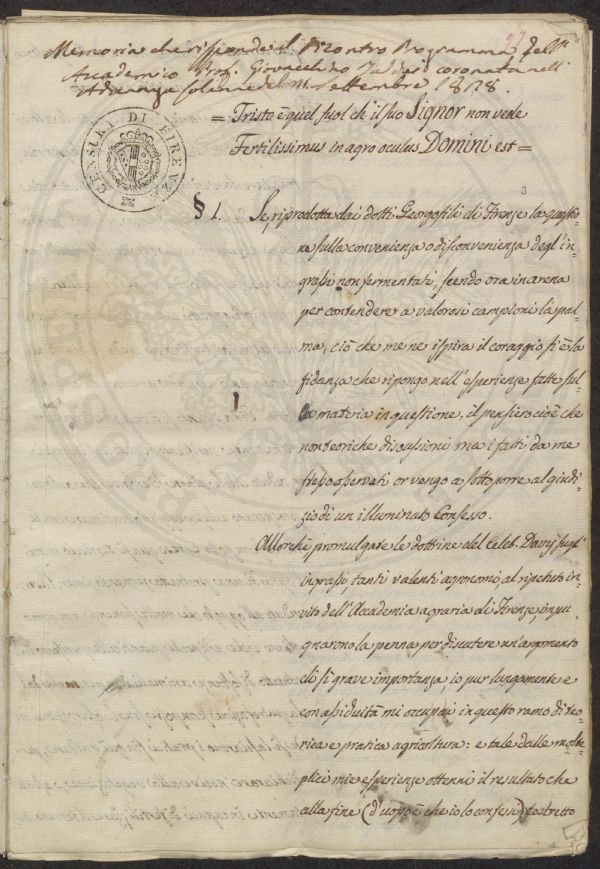 Memoria che risponde al Programma dell'
Accademico Prof. Giovacchino Taddei coronata nell'
Adunanza solenne del Settembre 1828.
= Tristo è quel suol ch'il suo Signor non vede
Fertilissimus in agro oculus Domini est =
CENSURA DI FIRENZE
3
§ 1. Se, riprodotta dai dotti Georgofili di Firenze la questio-
ne sulla convenienza o disconvenienza degl'in-
grassi non fermentati, scendo ora in arena
per contendere a valorosi campioni la pal-
ma, ciò che me ne ispira il coraggio si è la
fidanza che ripongo nell'esperienze fatte sul-
la materia in questione, il pensiero cioè che
non teoriche discussioni ma i fatti da me
stesso osservati or vengo a sottoporre al giudi-
zio di un illuminato Consesso.
Allorchè, promulgate le dottrine del Celeb. Davy sugl'
ingrassi, tanti valenti agronomi, al ripetuto in-
vito dell'Accademia agraria di Firenze, impu-
gnarono la penna per discutere un'argomento
di sì grave importanza, io pur lungamente e
con assiduità mi occupai in questo ramo di teo-
rica e pratica agricoltura: e tale dalle molte-
plici mie esperienze ottenni il resultato che
alla fine (d'uopo è che io lo confessi) costretto